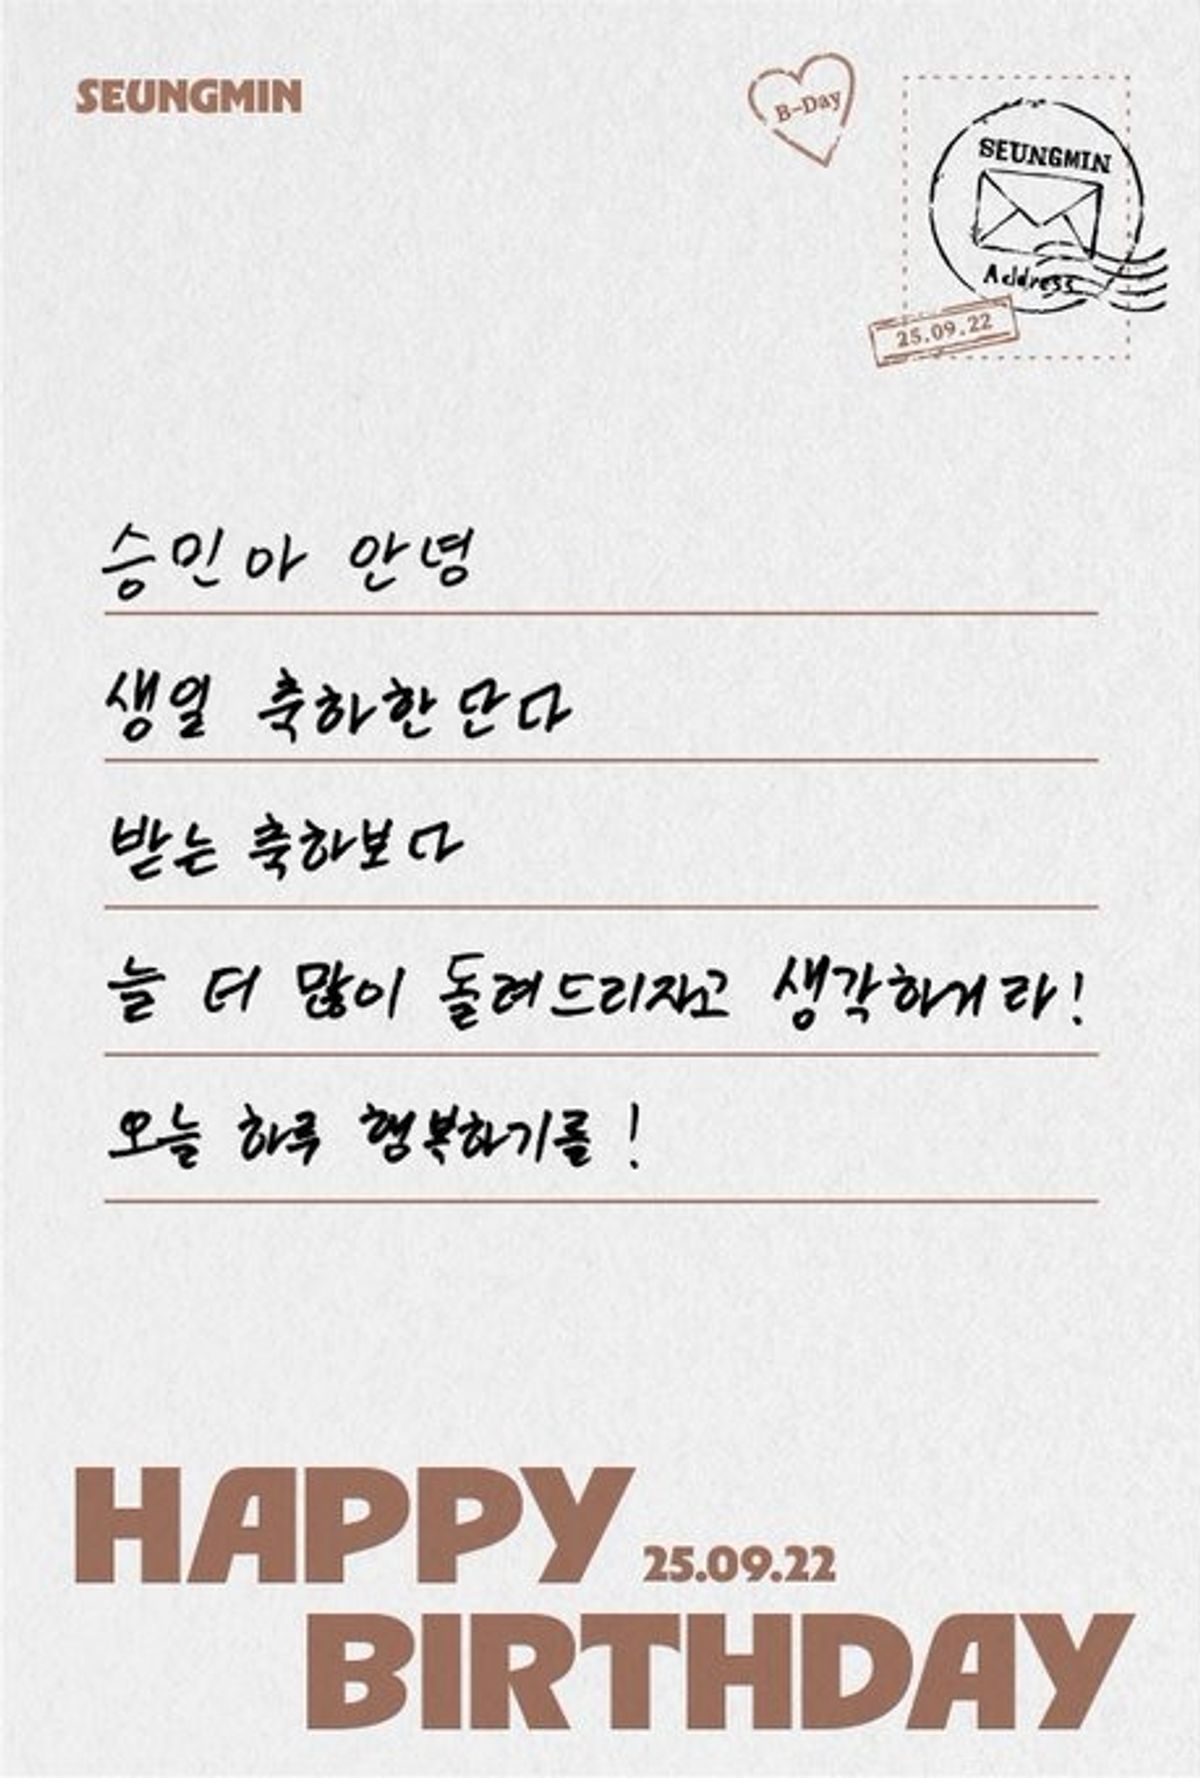 SEUNGMIN
B-Day
SEUNGMIN
Address
25.09.22
승민아 안녕
생일 축하한단다
받는 축하보다
늘 더 많이 돌려드리자고 생각하거라!
오늘 하루 행복하기를!
HAPPY
25.09.22
BIRTHDAY